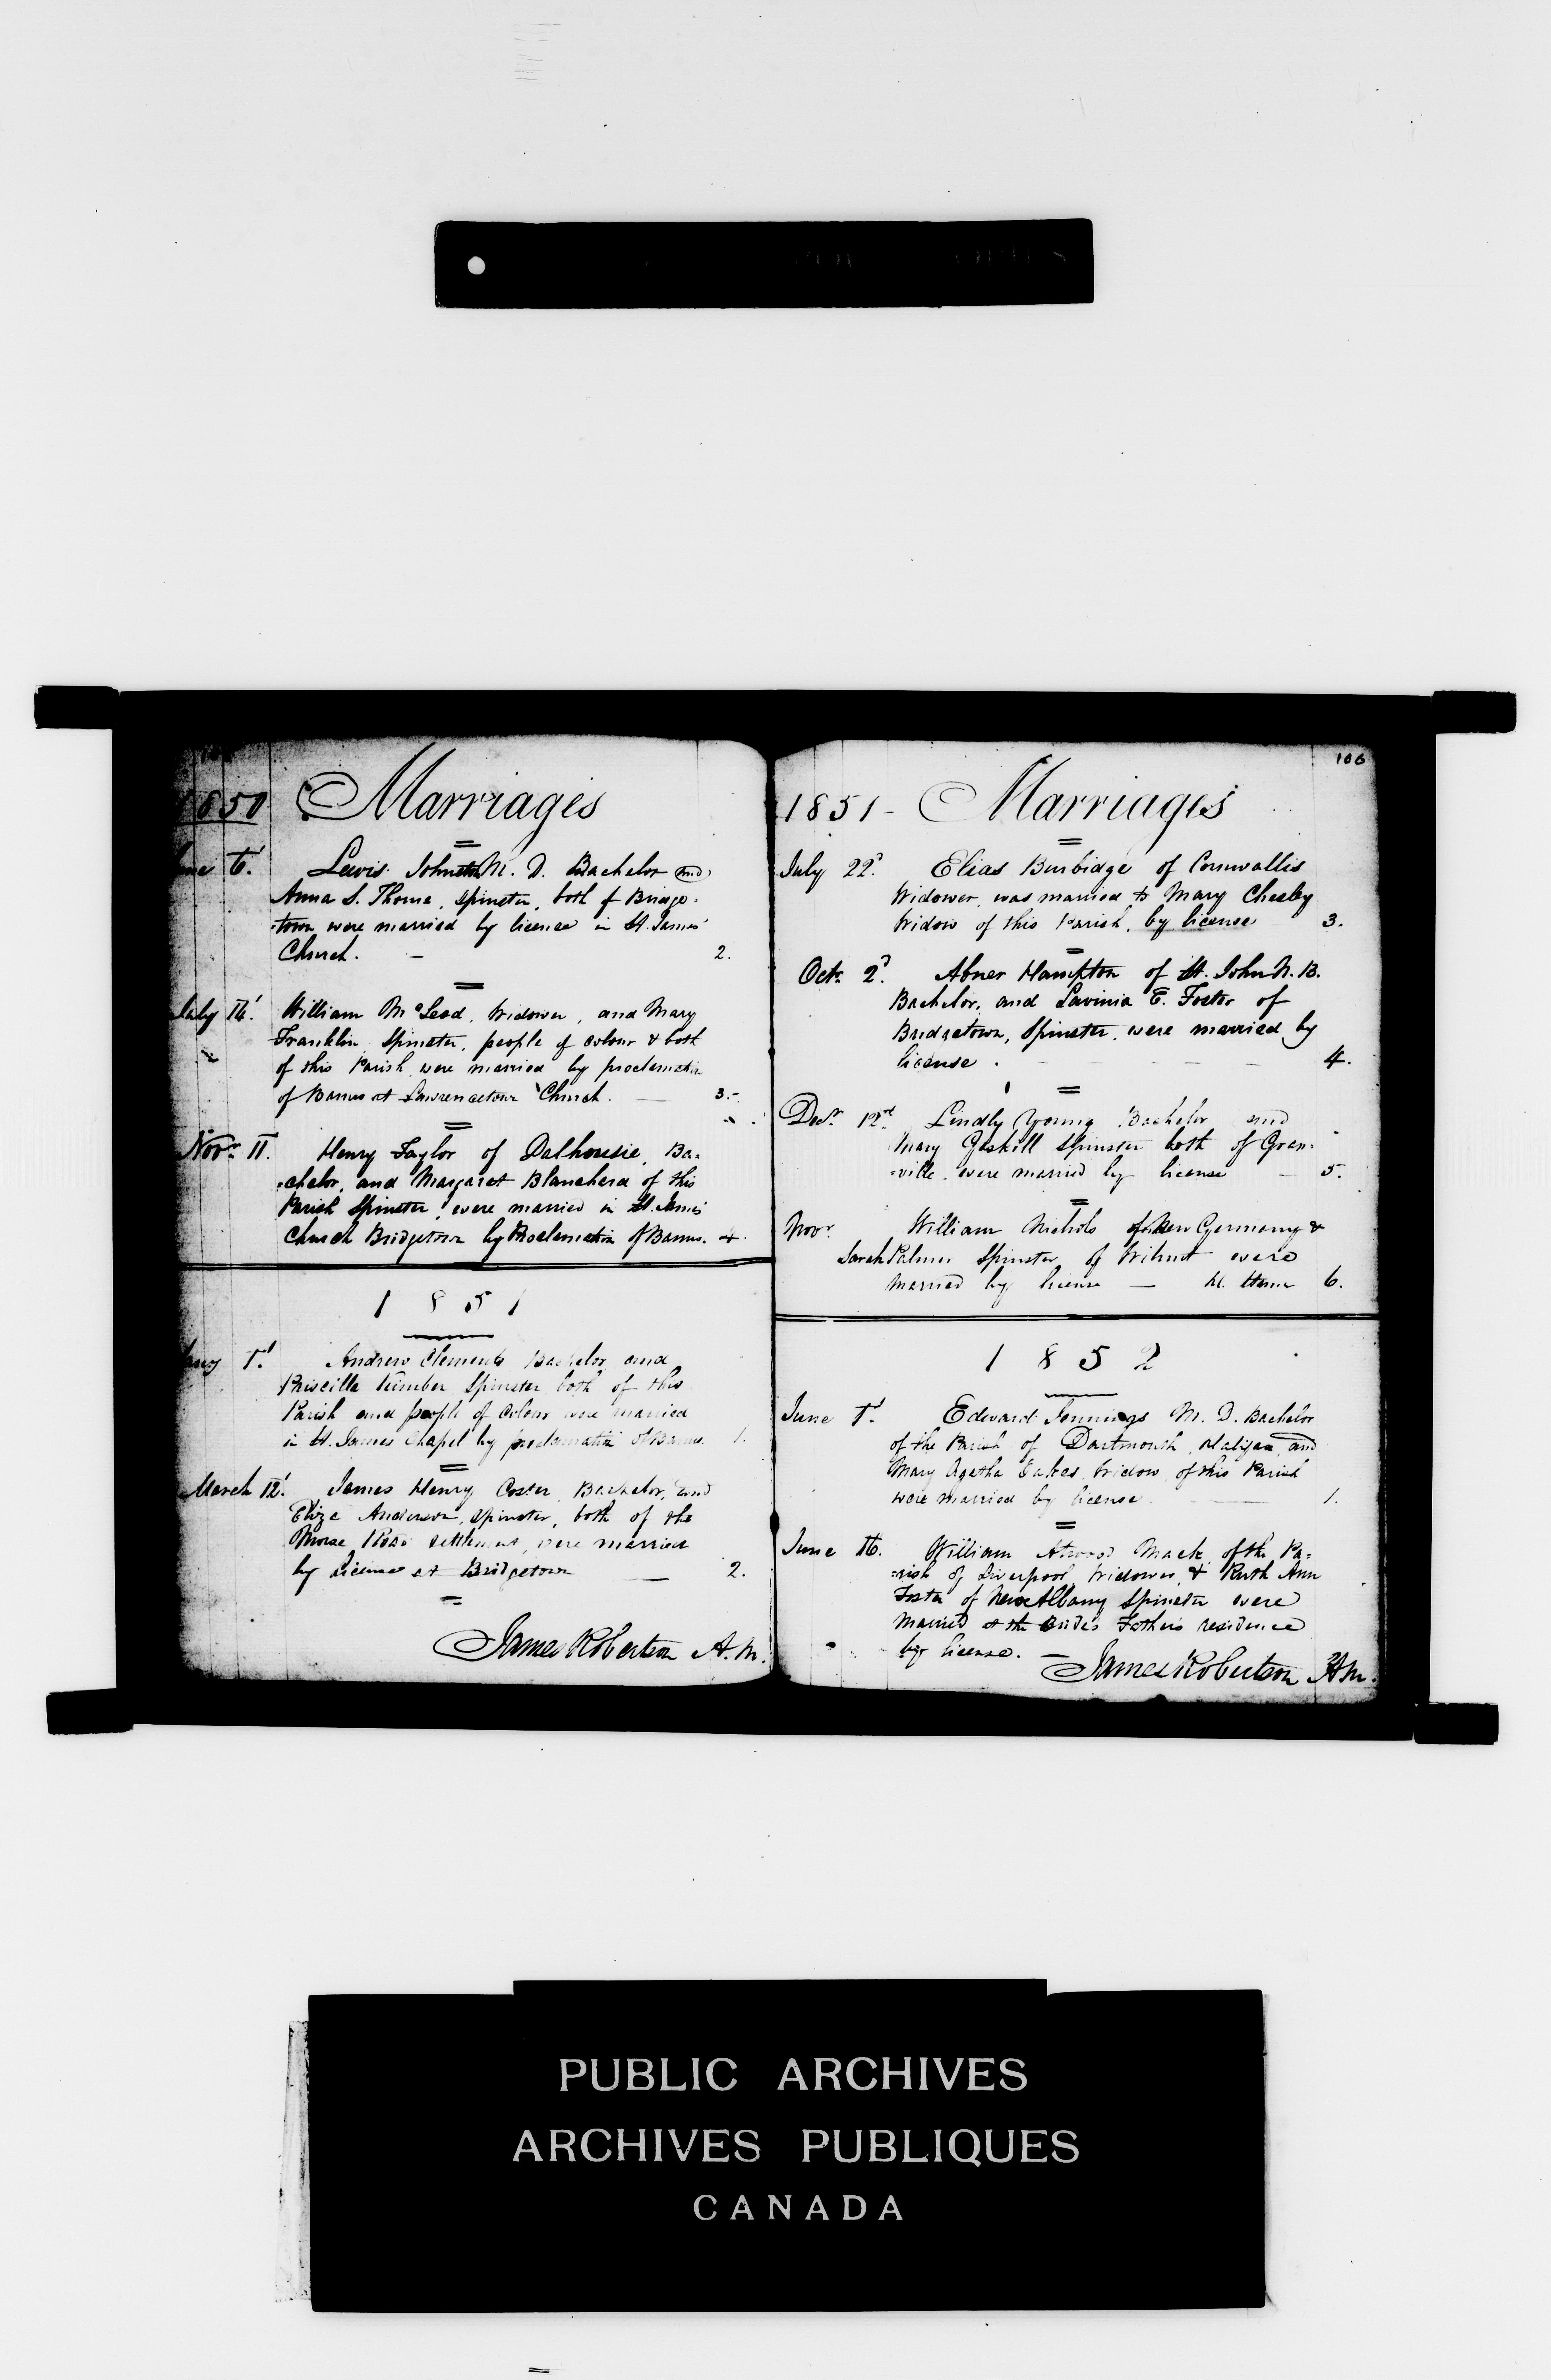 1850 Marriages
June 6.' Lewis Johnston M. D. Bachelor and
Anna S. Thorne, Spinster, both of Bridge-
-town were married by license in St. James'
Church. - 2.
July 16.' William McLeod, Widower, and Mary
Franklin Spinster, people of colour & both
of this Parish were married by proclamation
of Banns at Lawrencetown Church. — 3.-
Novr. 11. Henry Taylor of Dalhousie, Ba-
-chelor, and Margaret Blancherd of this
Parish Spinster, were married in St. James'
Church Bridgetown by Proclamation of Banns. 4.
1851
1.' Andrew Clements Bachelor and
Priscilla Kimber Spinster both of this
Parish and people of Colour were married
in St. James Chapel by proclamation of Banns. 1.
March 12.' James Henry Coster Bachelor, and
Eliza Anderson, Spinster, both of the
Morse Road settlement, were married
by License at Bridgetown — 2.
James Robertson A. M.
106
1851 - Marriages
July 22d. Elias Burbidge of Cornwallis
Widower, was married to Mary Chesley
Widow of this Parish, by license 3.
Octr. 2d. Abner Hampton of St. John N. B.
Bachelor, and Lavinia E. Foster of
Bridgetown, Spinster, were married by
license. - - - - 4.
Decr. 12. Lindly Young Bachelor and
Mary Gaskill Spinster both of Gran-
-ville, were married by license - 5.
Novr. William Nichols of New Germany &
Sarah Palmer Spinster of Wilmot were
married by license — 6.
1852
June 1.' Edward Jennings M. D. Bachelor
of the Parish of Dartmouth, Halifax, and
Mary Agatha Oakes Widow of this Parish
were married by license. — 1.
June 16. William Atwood Mack of the Pa-
-rish of Liverpool Widower, & Ruth Ann
Foster of New Albany Spinster were
married at the Bride's Father's residence
by license. — 2.
James Robertson A.M.
PUBLIC ARCHIVES
ARCHIVES PUBLIQUES
CANADA